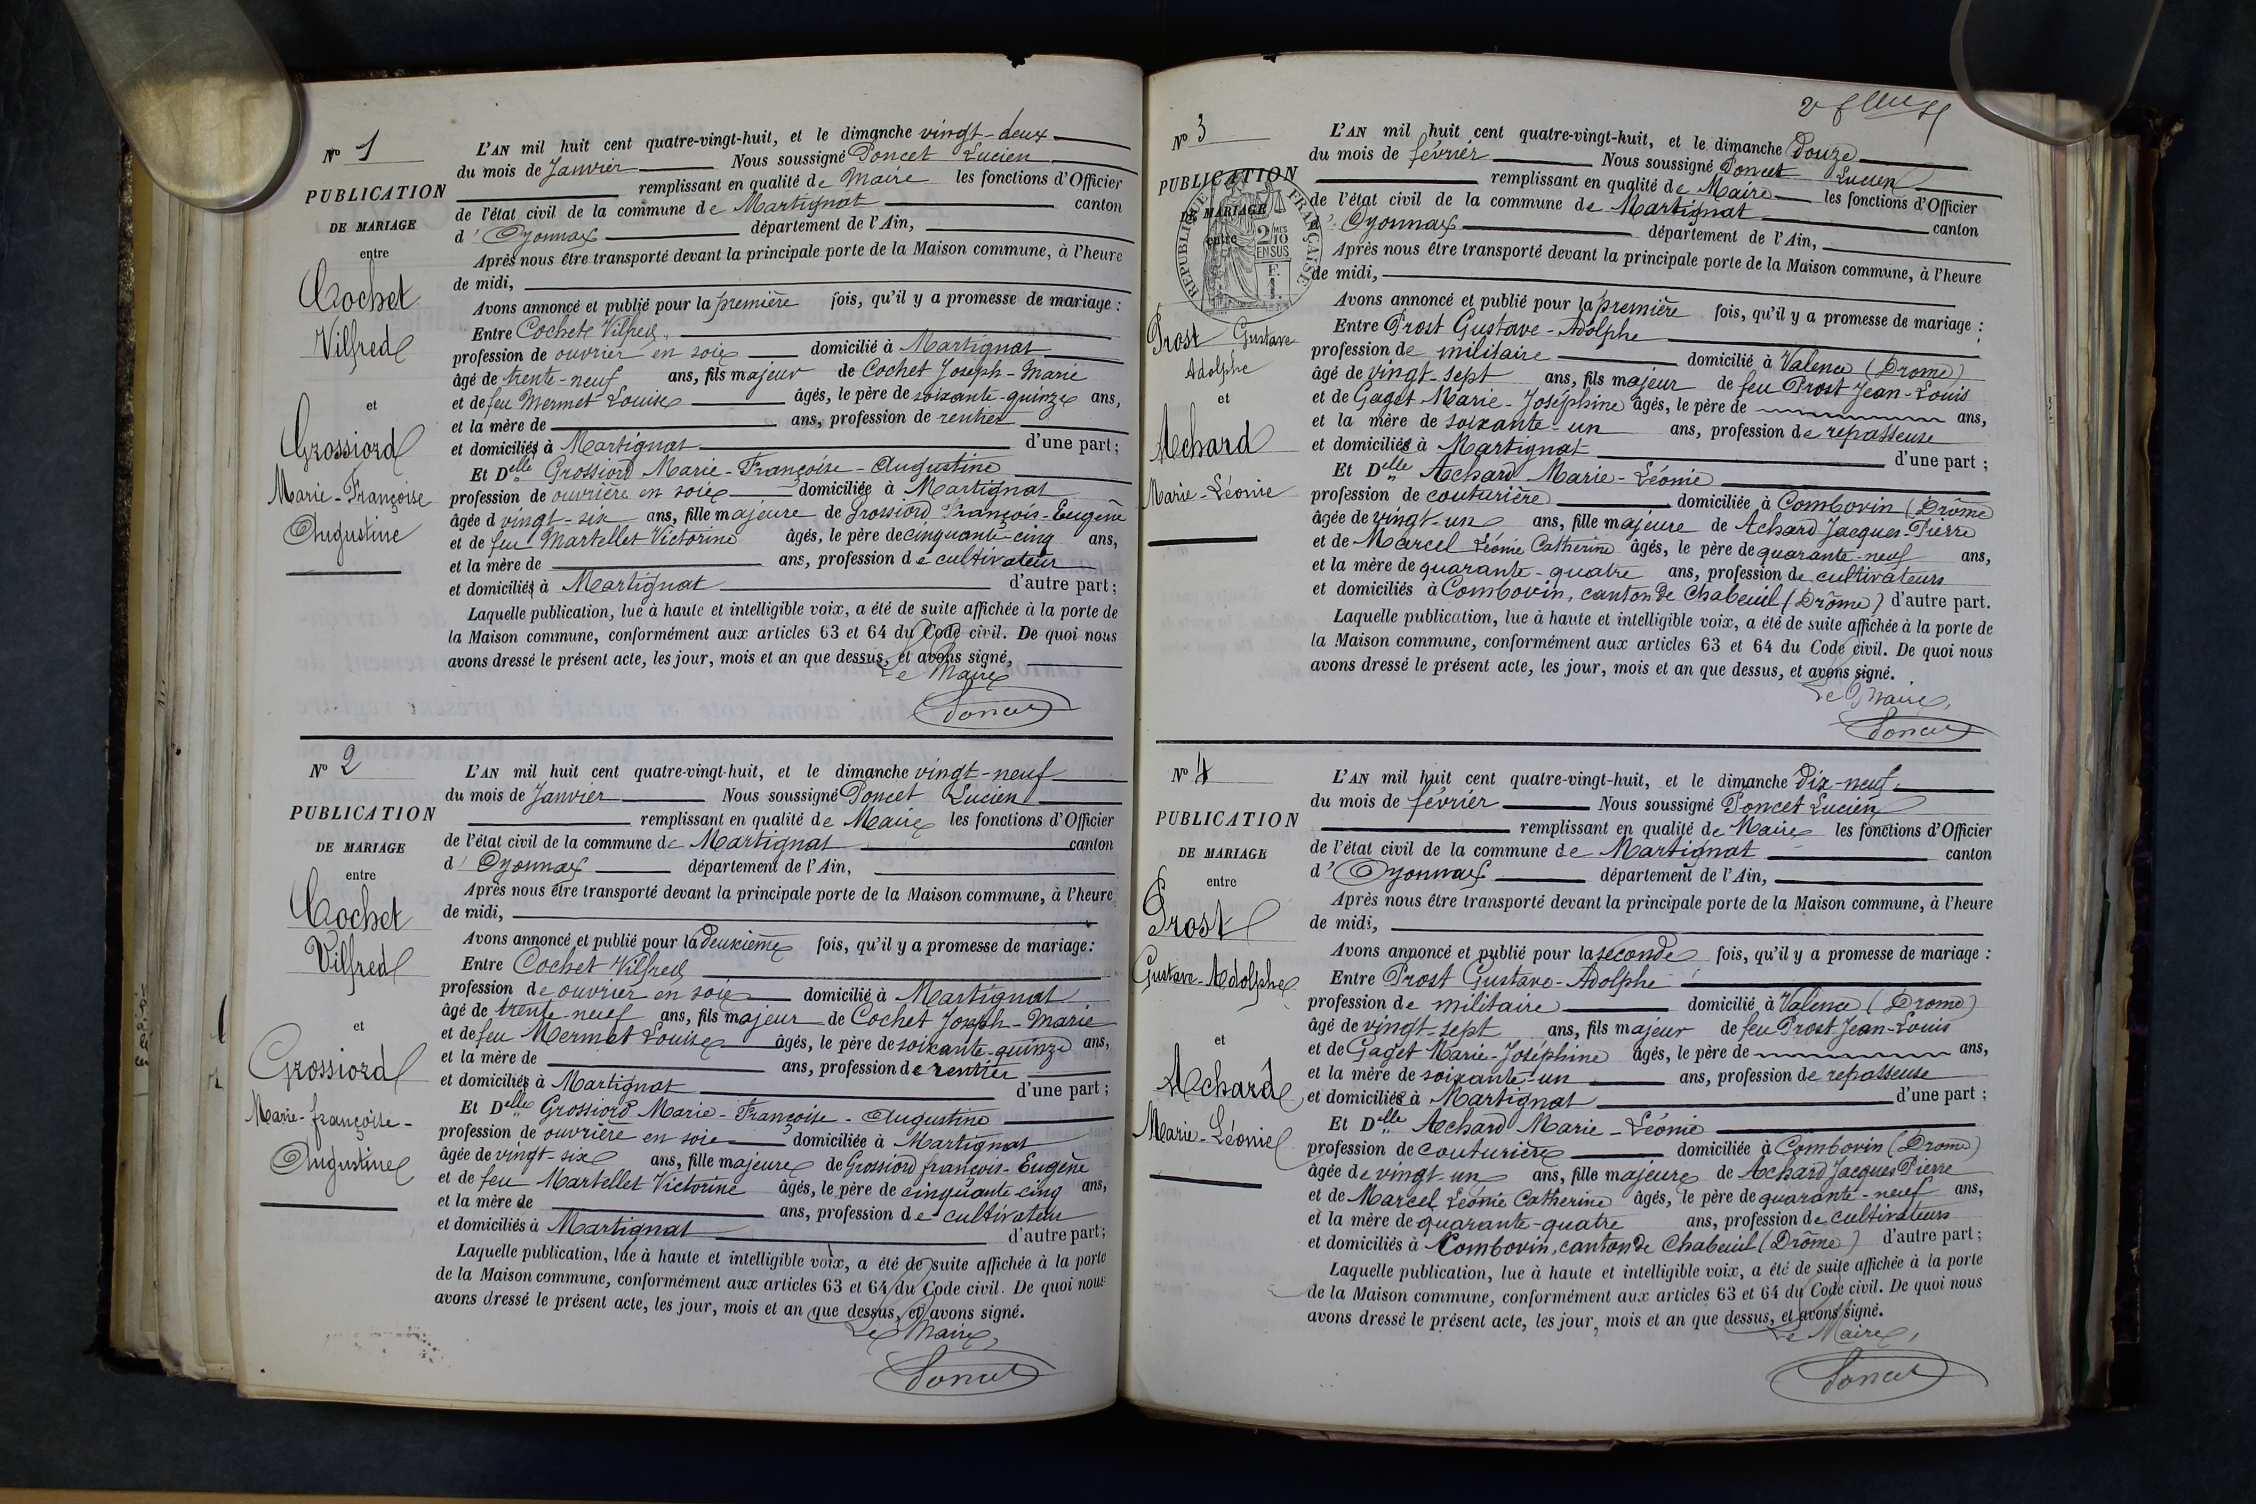 Nº 1
PUBLICATION
DE MARIAGE
entre
Cochet
Vilfred
et
Grossiord
Marie-Françoise
Augustine
L'AN mil huit cent quatre-vingt-huit, et le dimanche vingt-deux
du mois de Janvier Nous soussigné Poncet Lucien
remplissant en qualité de Maire les fonctions d'Officier
de l'état civil de la commune de Martignat canton
d'Oyonnax département de l'Ain,
Après nous être transporté devant la principale porte de la Maison commune, à l'heure
de midi,
Avons annoncé et publié pour la première fois, qu'il y a promesse de mariage :
Entre Cochet Vilfred,
profession de ouvrier en soie domicilié à Martignat
âgé de trente-neuf ans, fils majeur de Cochet Joseph-Marie
et de feu Mermet Louise âgés, le père de soixante-quinze ans,
et la mère de ans, profession de rentier
et domiciliés à Martignat d'une part ;
Et Delle Grossiord Marie-Françoise-Augustine
profession de ouvrière en soie domiciliée à Martignat
âgée d vingt-six ans, fille majeure de Grossiord François-Eugène
et de feu Martellet Victorine âgés, le père de cinquante-cinq ans,
et la mère de ans, profession de cultivateur
et domiciliés à Martignat d'autre part ;
Laquelle publication, lue à haute et intelligible voix, a été de suite affichée à la porte de
la Maison commune, conformément aux articles 63 et 64 du Code civil. De quoi nous
avons dressé le présent acte, les jour, mois et an que dessus, et avons signé,
Le Maire
Poncet
Nº 2
PUBLICATION
DE MARIAGE
entre
Cochet
Vilfred
et
Grossiord
Marie-françoise-
Augustine
L'AN mil huit cent quatre-vingt-huit, et le dimanche vingt-neuf
du mois de Janvier Nous soussigné Poncet Lucien
remplissant en qualité de Maire les fonctions d'Officier
de l'état civil de la commune de Martignat canton
d'Oyonnax département de l'Ain,
Après nous être transporté devant la principale porte de la Maison commune, à l'heure
de midi,
Avons annoncé et publié pour la deuxième fois, qu'il y a promesse de mariage :
Entre Cochet Vilfred
profession de ouvrier en soie domicilié à Martignat
âgé de trente-neuf ans, fils majeur de Cochet Joseph-Marie
et de feu Mermet Louise âgés, le père de soixante-quinze ans,
et la mère de ans, profession de rentier
et domiciliés à Martignat d'une part ;
Et Delle Grossiord Marie-Françoise-Augustine
profession de ouvrière en soie domiciliée à Martignat
âgée de vingt-six ans, fille majeure de Grossiord françois-Eugène
et de feu Martellet Victorine âgés, le père de cinquante-cinq ans,
et la mère de ans, profession de cultivateur
et domiciliés à Martignat d'autre part ;
Laquelle publication, lue à haute et intelligible voix, a été de suite affichée à la porte
de la Maison commune, conformément aux articles 63 et 64 du Code civil. De quoi nous
avons dressé le présent acte, les jour, mois et an que dessus, et avons signé.
Le Maire,
Poncet
Nº 3
PUBLICATION
DE MARIAGE
entre
RÉPUBLIQUE FRANÇAISE
2/10 MES
EN SUS
Prost Gustave
Adolphe
et
Achard
Marie-Léonie
L'AN mil huit cent quatre-vingt-huit, et le dimanche Douze
du mois de février Nous soussigné Poncet Lucien
remplissant en qualité de Maire les fonctions d'Officier
de l'état civil de la commune de Martignat canton
d'Oyonnax département de l'Ain,
Après nous être transporté devant la principale porte de la Maison commune, à l'heure
de midi,
Avons annoncé et publié pour la première fois, qu'il y a promesse de mariage :
Entre Prost Gustave-Adolphe
profession de militaire domicilié à Valence (Drome)
âgé de vingt-sept ans, fils majeur de feu Prost Jean-Louis
et de Gaget Marie-Joséphine âgés, le père de ans,
et la mère de soixante-un ans, profession de repasseuse
et domiciliés à Martignat d'une part ;
Et Delle Achard Marie-Léonie
profession de couturière domiciliée à Combovin (Drôme
âgée de vingt-un ans, fille majeure de Achard Jacques-Pierre
et de Marcel Léonie Catherine âgés, le père de quarante-neuf ans,
et la mère de quarante-quatre ans, profession de cultivateurs
et domiciliés à Combovin, canton de Chabeuil (Drôme) d'autre part.
Laquelle publication, lue à haute et intelligible voix, a été de suite affichée à la porte de
la Maison commune, conformément aux articles 63 et 64 du Code civil. De quoi nous
avons dressé le présent acte, les jour, mois et an que dessus, et avons signé.
Le Maire,
Poncet
Nº 4
PUBLICATION
DE MARIAGE
entre
Prost
Gustave-Adolphe
et
Achard
Marie-Léonie
L'AN mil huit cent quatre-vingt-huit, et le dimanche Dix-neuf
du mois de février Nous soussigné Poncet Lucien
remplissant en qualité de Maire les fonctions d'Officier
de l'état civil de la commune de Martignat canton
d'Oyonnax département de l'Ain,
Après nous être transporté devant la principale porte de la Maison commune, à l'heure
de midi,
Avons annoncé et publié pour la seconde fois, qu'il y a promesse de mariage :
Entre Prost Gustave-Adolphe
profession de militaire domicilié à Valence (Drome)
âgé de vingt-sept ans, fils majeur de feu Prost Jean-Louis
et de Gaget Marie-Joséphine âgés, le père de ans,
et la mère de soixante-un ans, profession de repasseuse
et domiciliés à Martignat d'une part ;
Et Delle Achard Marie-Léonie
profession de couturière domiciliée à Combovin (Drome)
âgée de vingt-un ans, fille majeure de Achard Jacques Pierre
et de Marcel Léonie Catherine âgés, le père de quarante-neuf ans,
et la mère de quarante-quatre ans, profession de cultivateurs
et domiciliés à Combovin, canton de Chabeuil (Drôme) d'autre part ;
Laquelle publication, lue à haute et intelligible voix, a été de suite affichée à la porte
de la Maison commune, conformément aux articles 63 et 64 du Code civil. De quoi nous
avons dressé le présent acte, les jour, mois et an que dessus, et avons signé.
Le Maire,
Poncet